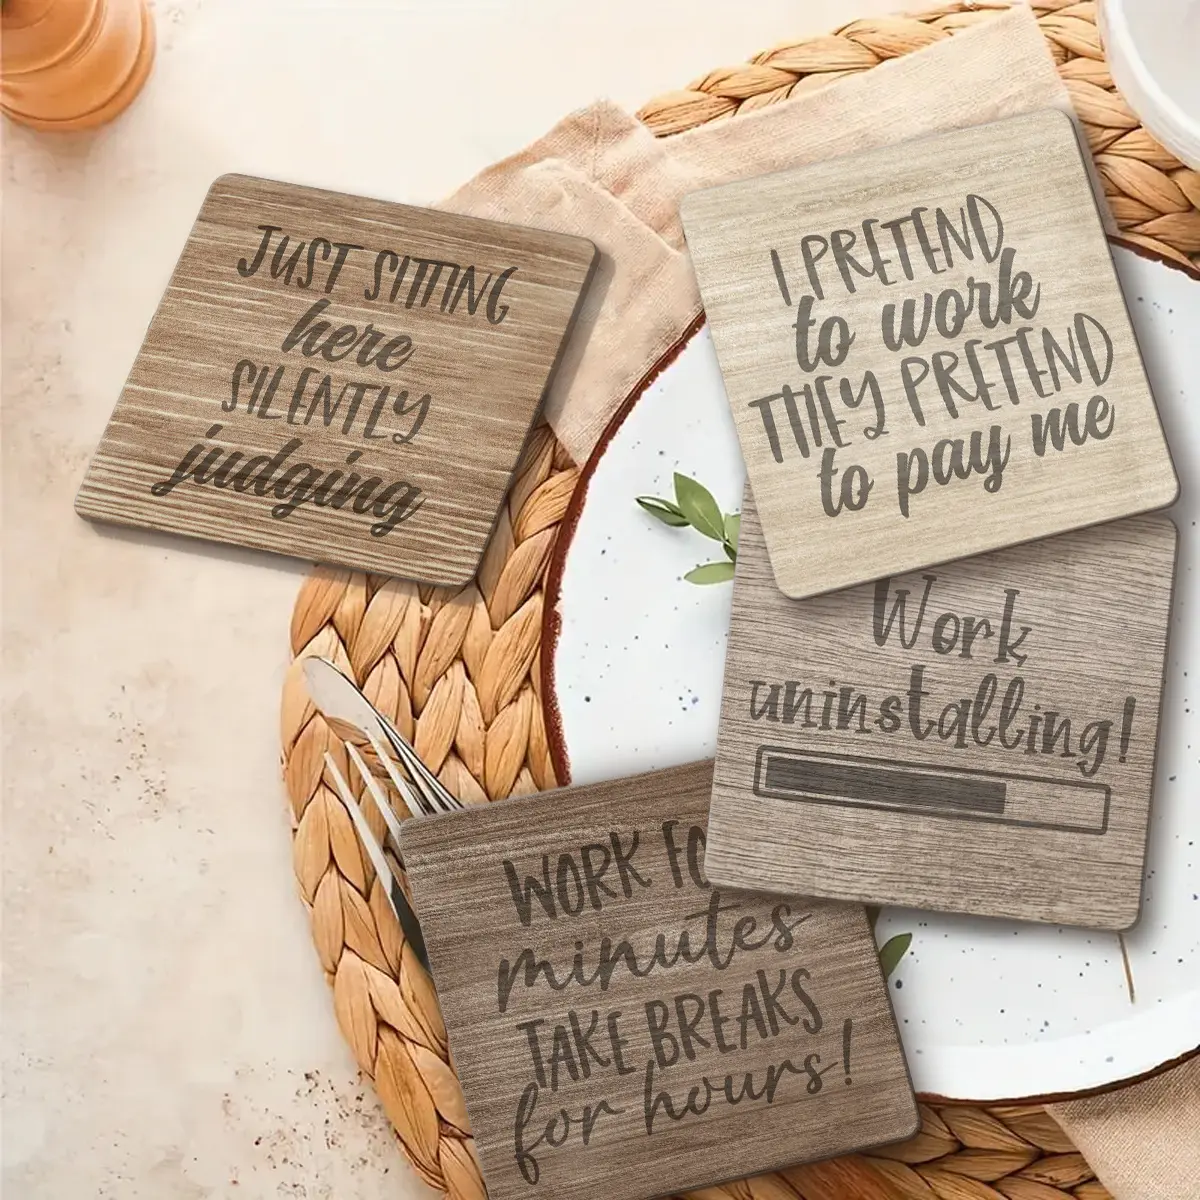 JUST SITTING
here
SILENTLY
judging
I PRETEND
to work
THEY PRETEND
to pay me
Work
uninstalling!
WORK
minutes
TAKE BREAKS
for hours!